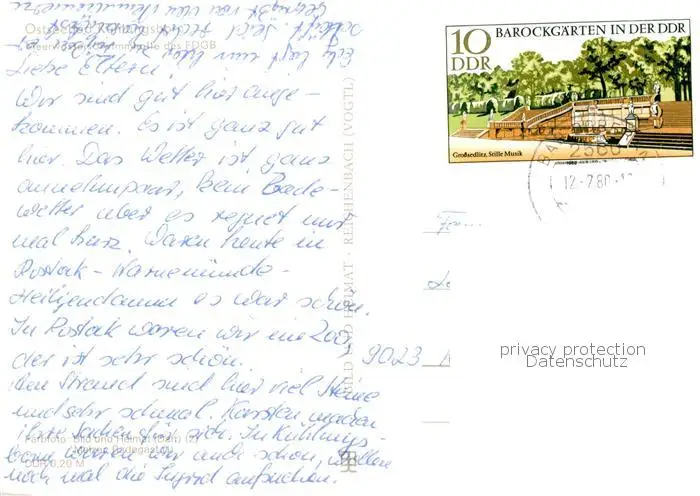 Ostseebad Kühlungsborn
Meerwasserschwimmhalle des FDGB
Liebe Eltern!
Wir sind gut hier ange-
kommen. Es ist ganz gut
hier. Das Wetter ist ganz
annehmbar, kein Bade-
wetter aber es regnet nur
mal kurz. Waren heute in
Rostok - Warnemünde -
Heiligendamm es war schön.
In Rostok waren wir im Zoo,
der ist sehr schön.
Am Strand sind hier viel Steine
und sehr schmal. Karsten machen
ihre Sachen für sich. In Kühlungs-
born waren wir auch schon, wollen
noch mal die Ingrid aufsuchen.
Farbfoto: Bild und Heimat
DDR 0,20 M
BILD UND HEIMAT · REICHENBACH (VOGTL)
10
DDR
BAROCKGÄRTEN IN DER DDR
Großsedlitz, Stille Musik
12.-7.80
9023
privacy protection
Datenschutz